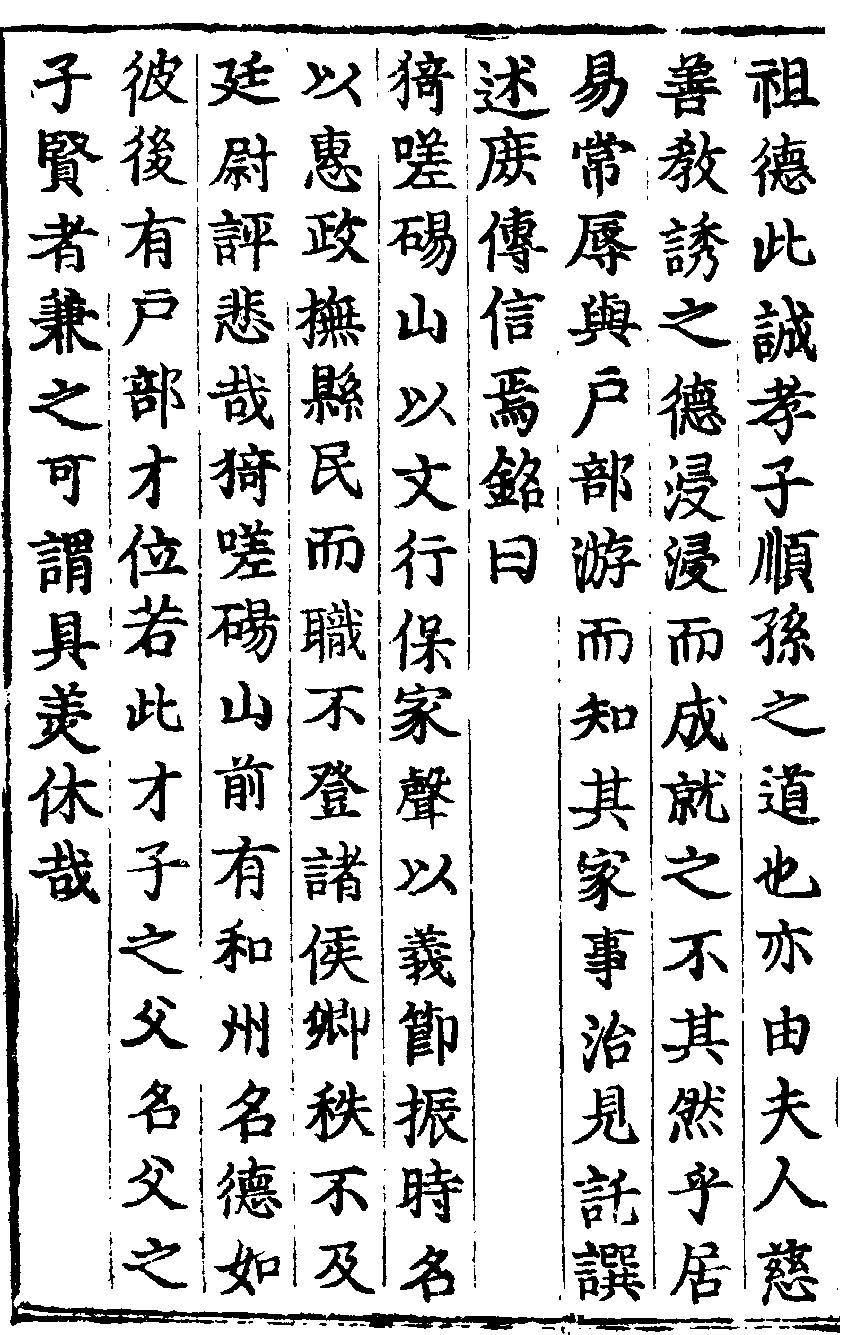 祖德此誠孝子順孫之道也亦由夫人慈
善敎誘之德浸浸而成就之不其然乎居
易常辱與戶部游而知其家事治見託譔
述庻傳信焉銘曰
猗嗟碭山以文行保家聲以義節振時名
以惠政撫縣民而職不登諸侯卿秩不及
廷尉評悲哉猗嗟碭山前有和州名德如
彼後有戶部才位若此才子之父名父之
子賢者兼之可謂具美休哉